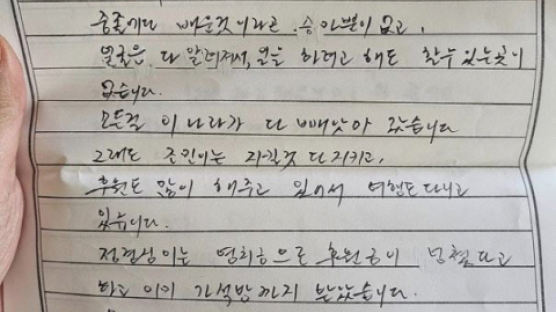 중졸에다 배운것이라곤 승 아뿐이 없고,
얼굴은 다 알려져서, 일을 하려고 해도 할수 있는곳이
없습니다.
모든걸 이 나라가 다 빼앗아 갔습니다
그래도 근인이는 자길것 다 지키고,
후원도 많이 해주고 있어서 여행도 다니고
있습니다.
정경심이는 영치금으로 후원금이 넘친다고
하고 이미 가석방까지 받았습니다.